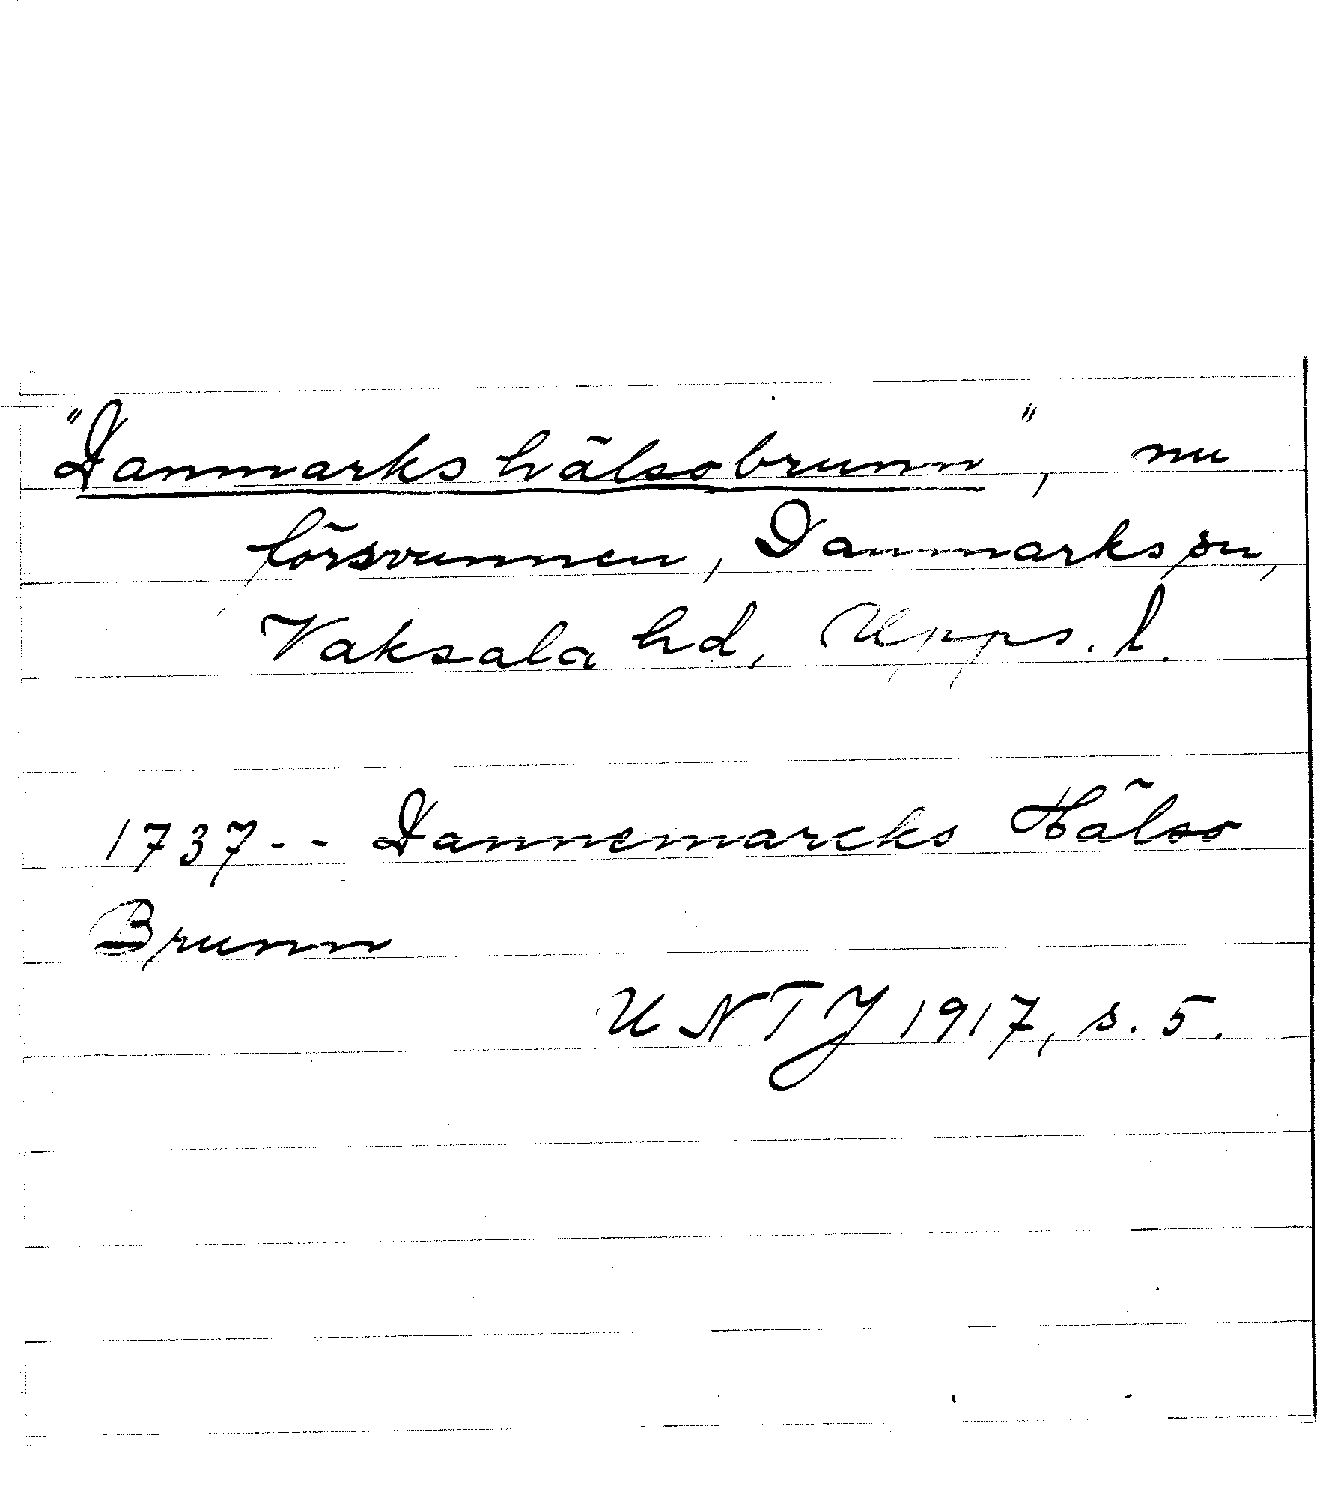 "Danmarks hälsobrunn", nu
försvunnen, Danmarks sn,
Vaksala hd, Upps. l.
1737-- Dannemarcks Hälso
Brunn
UNTJ 1917, s. 5.